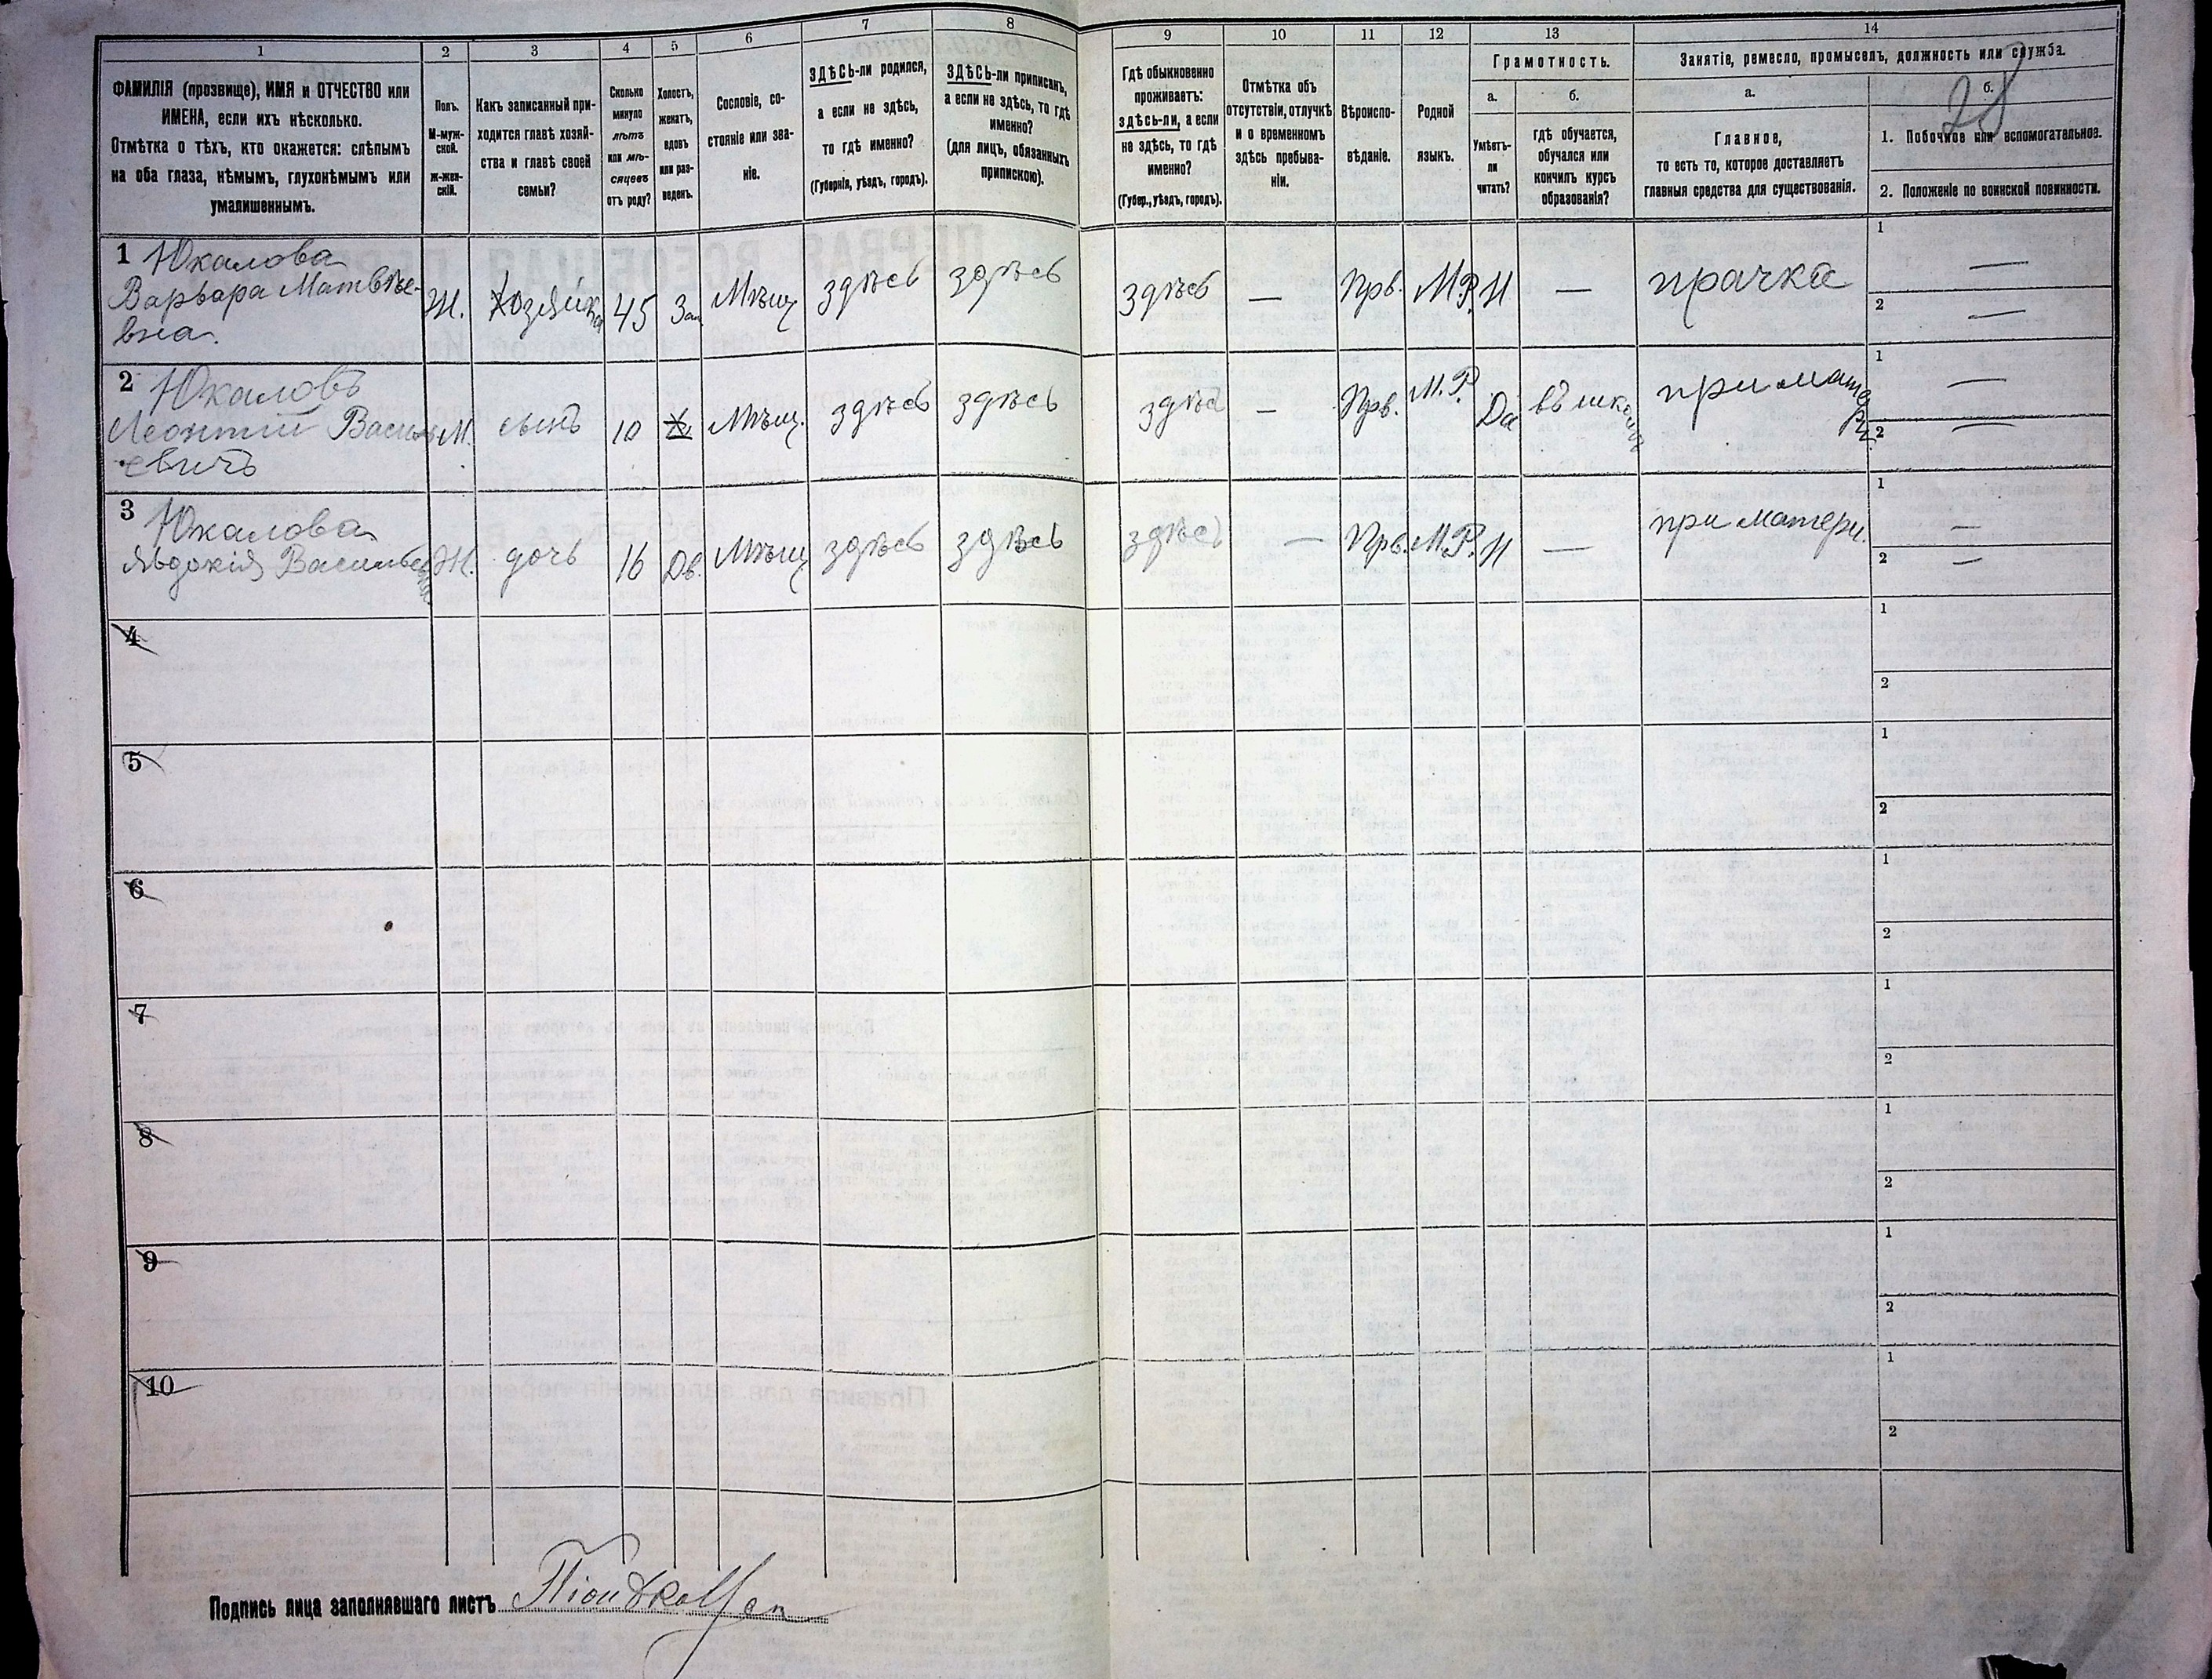 1
2
3
4
5
6
7
8
9
10
11
12
13
14
ФАМИЛІЯ (прозвище), ИМЯ и ОТЧЕСТВО или
ИМЕНА, если ихъ нѣсколько.
Отмѣтка о тѣхъ, кто окажется: слѣпымъ
на оба глаза, нѣмымъ, глухонѣмымъ или
умалишеннымъ.
Полъ.
М-муж-
ской.
Ж-жен-
скій.
Какъ записанный при-
ходится главѣ хозяй-
ства и главѣ своей
семьи?
Сколько
минуло
лѣтъ
или мѣ-
сяцевъ
отъ роду?
Холостъ,
женатъ,
вдовъ
или раз-
веденъ.
Сословіе, со-
стояніе или зва-
ніе.
ЗДѢСЬ-ли родился,
а если не здѣсь,
то гдѣ именно?
(Губернія, уѣздъ, городъ).
ЗДѢСЬ-ли приписанъ,
а если не здѣсь, то гдѣ
именно?
(для лицъ, обязанныхъ
припискою).
Гдѣ обыкновенно
проживаетъ:
здѣсь-ли, а если
не здѣсь, то гдѣ
именно?
(Губер., уѣздъ, городъ).
Отмѣтка объ
отсутствіи, отлучкѣ
и о временномъ
здѣсь пребыва-
ніи.
Вѣроиспо-
вѣданіе.
Родной
языкъ.
Грамотность.
а.
Умѣетъ-
ли
читать?
б.
гдѣ обучается,
обучался или
кончилъ курсъ
образованія?
Занятіе, ремесло, промыселъ, должность или служба.
а.
Главное,
то есть то, которое доставляетъ
главныя средства для существованія.
б.
28
1. Побочное или вспомогательное.
2. Положеніе по воинской повинности.
1 Юкалова
Варвара Матвѣе-
вна.
Ж.
Хозяйка
45
Зам.
Мѣщ
здѣсь
здѣсь
здѣсь
—
Прв.
М.Р.
Н
—
прачка
1 —
2 —
2 Юкаловъ
Леонтій Василь
евичъ
М.
сынъ
10
Х.
Мѣщ.
здѣсь
здѣсь
здѣсь
—
Прв.
М.Р.
Да
въ школѣ
при матери
1 —
2 —
3 Юкалова
Явдокія Васильевна
Ж.
дочь
16
Дв.
Мѣщ
здѣсь
здѣсь
здѣсь
—
Прв.
М.Р.
Н
—
при матери.
1 —
2 —
4
1
2
5
1
2
6
1
2
7
1
2
8
1
2
9
1
2
10
1
2
Подпись лица заполнявшаго листъ